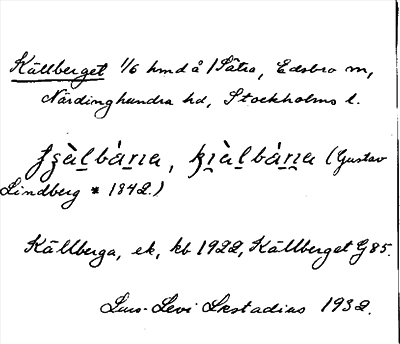 Källberget 1/6 hmd å / Sätra, Edsbro sn,
Närdinghundra hd, Stockholms l.
(Gustav
Lindberg * 1842.)
Källberga, ek, kb 1922, Källberget G 85.
Lars-Levi Læstadius 1932.